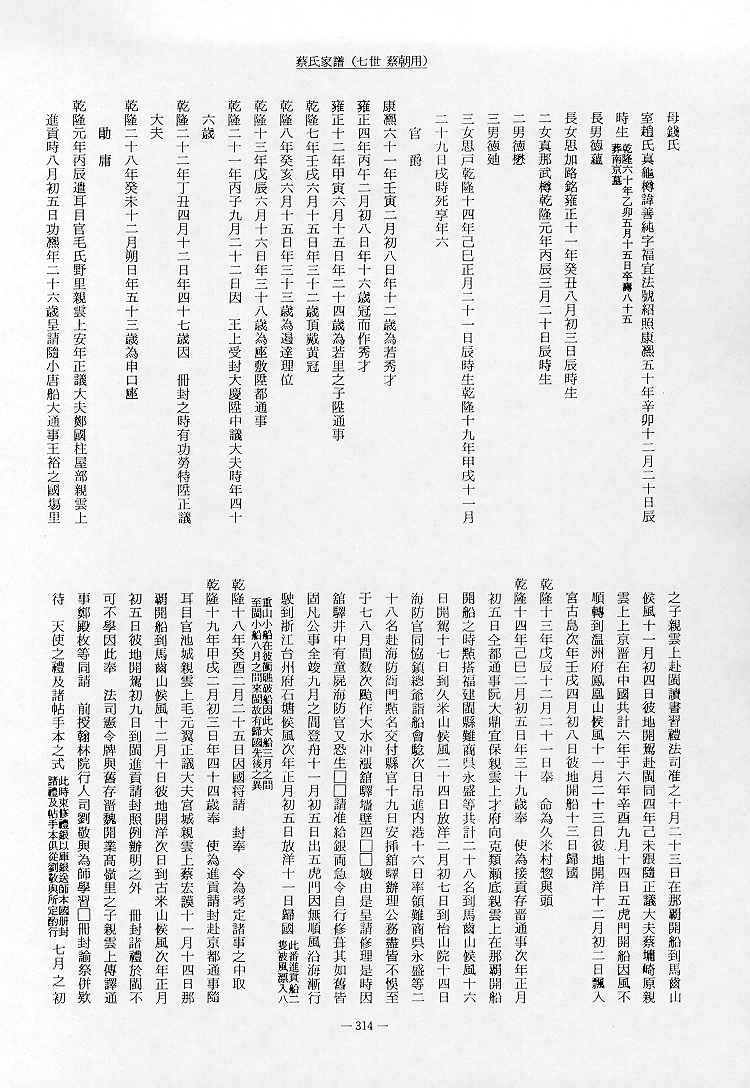 蔡氏家譜(七世 蔡朝用)
母錢氏
室趙氏真龜樽諱善純字福宜法號紹照康熙五十年辛卯十二月二十日辰
時生 乾隆六十年乙卯五月十五日卒壽八十五
葬南京墓
長男德蘊
長女思加路銘雍正十一年癸丑八月初三日辰時生
二女真那武樽乾隆元年丙辰三月二十日辰時生
二男德懋
三男德廸
三女思戸乾隆十四年己巳正月二十一日辰時生乾隆十九年甲戌十一月
二十九日戌時死享年六
官爵
康熙六十一年壬寅二月初八日年十二歲為若秀才
雍正四年丙午二月初八日年十六歲冠而作秀才
雍正十二年甲寅六月十五日年二十四歲為若里之子陞通事
乾隆七年壬戌六月十五日年三十二歲頂戴黃冠
乾隆八年癸亥六月十五日年三十三歲為邊達理位
乾隆十三年戊辰六月十六日年三十八歲為座敷陞都通事
乾隆二十一年丙子九月二十二日因 王上受封大慶陞中議大夫時年四十
六歲
乾隆二十二年丁丑四月十二日年四十七歲因 冊封之時有功勞特陞正議
大夫
乾隆二十八年癸未十二月朔日年五十三歲為申口座
勛庸
乾隆元年丙辰遣耳目官毛氏野里親雲上安年正議大夫鄭國柱屋部親雲上
進貢時八月初五日功熙年二十六歲呈請隨小唐船大通事王裕之國場里
之子親雲上赴閩讀書習禮法司准之十月二十三日在那覇開船到馬齒山
候風十一月初四日彼地開駕赴閩同四年己未跟隨正議大夫蔡墉崎原親
雲上上京晋在中國共計六年于六年辛酉九月十四日五虎門開船因風不
順轉到温洲府鳳凰山候風十一月二十三日彼地開洋十二月初二日飄入
宮古島次年壬戌四月初八日彼地開船十三日歸國
乾隆十三年戊辰十二月二十一日奉 命為久米村惣與頭
乾隆十四年己巳二月初五日年三十九歲奉 使為接貢存晋通事次年正月
初五日仝都通事阮大鼎宜保親雲上才府向克類瀬底親雲上在那覇開船
開船之時點搭福建閩縣難商呉永盛等共計二十八名到馬齒山候風十六
日開駕十七日到久米山候風二十四日放洋二月初七日到怡山院十四日
海防官同協鎮總爺詣船會驗次日吊進内港十六日率領難商呉永盛等二
十八名赴海防衙門㸃名交付縣官十九日安挿舘驛辦理公務盡皆不悮至
于七八月間数次颱作大水冲漲舘驛墻壁四□□壊由是呈請修理是時因
舘驛井中有童屍海防官又恐生□□請准給銀両急令自行修葺其如舊皆
固凡公事全竣九月之間登舟十一月初五日出五虎門因無順風沿海漸行
駛到浙江台州府石塘候風次年正月初五日放洋十一日歸國 此番進貢船二
隻被風漂入八
重山小船在彼衝礁破船因此大船三月之間
至閩小船八月之間來閩故有歸國先後之異
乾隆十八年癸酉二月二十五日因國將請 封奉 令為考定諸事之中取
乾隆十九年甲戌二月初三日年四十四歲奉 使為進貢請封赴京都通事隨
耳目官池城親雲上毛元翼正議大夫宮城親雲上蔡宏謨十一月十四日那
覇開船到馬齒山候風十二月十日彼地開洋次日到古米山候風次年正月
初五日彼地開駕初九日到閩進貢請封照例辦明之外 冊封諸禮於閩不
可不學因此奉 法司憲令牌與舊存晋魏開業髙嶺里之子親雲上傳譯通
事鄭殿枚等同請 前授翰林院行人司劉敬與為師學習□冊封諭祭併欵
待 天使之禮及諸帖手本之式 此時束修禮銀以庫銀送師本國册封
諸禮及帖手本俱從劉敬與所定酌行 七月之初
— 314 —